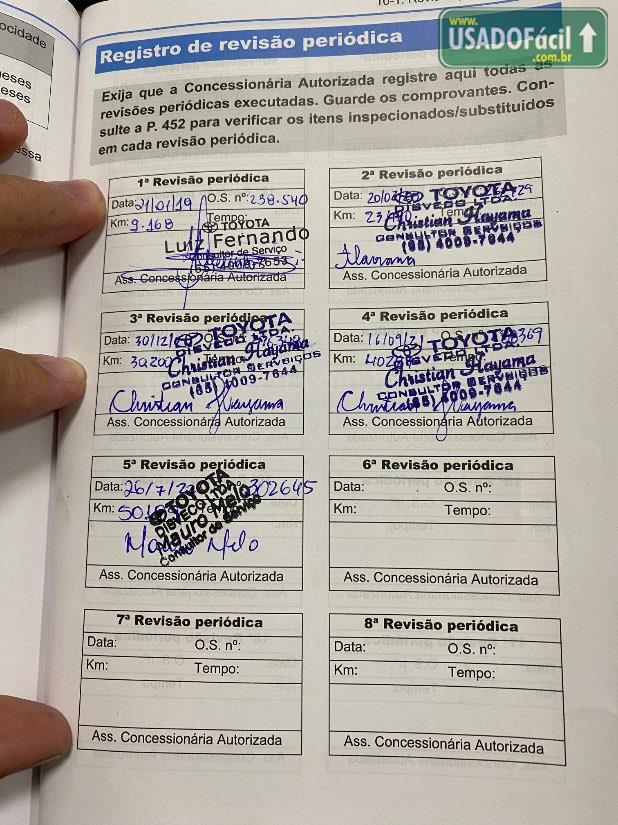 www.
USADOFácil
.com.br
ocidade
eses
eses
essa
Registro de revisão periódica
Exija que a Concessionária Autorizada registre aqui todas as
revisões periódicas executadas. Guarde os comprovantes. Con-
sulte a P. 452 para verificar os itens inspecionados/substituídos
em cada revisão periódica.
1ª Revisão periódica
Data: 21/01/19 O.S. nº: 238.540
Km: 9.168 Tempo:
TOYOTA
Luiz Fernando
Consultor de Serviço
Ass. Concessionária Autorizada
2ª Revisão periódica
Data:
Km:
TOYOTA
DISVECO LTDA.
Christian Hayama
CONSULTOR SERVIÇOS
(65) 4009-7644
Ass. Concessionária Autorizada
3ª Revisão periódica
Data: 30/12/
Km: 30.200
TOYOTA
DISVECO LTDA.
Christian Hayama
CONSULTOR SERVIÇOS
(65) 4009-7644
Christian Hayama
Ass. Concessionária Autorizada
4ª Revisão periódica
Data: 16/09/21 O.S. nº
Km:
TOYOTA
DISVECO LTDA.
Christian Hayama
CONSULTOR SERVIÇOS
(65) 4009-7644
Christian Hayama
Ass. Concessionária Autorizada
5ª Revisão periódica
Data: 26/7/ 302645
Km:
TOYOTA
DISVECO LTDA
Mauro Melo
Consultor de Serviço
Mauro Melo
Ass. Concessionária Autorizada
6ª Revisão periódica
Data: O.S. nº:
Km: Tempo:
Ass. Concessionária Autorizada
7ª Revisão periódica
Data: O.S. nº:
Km: Tempo:
Ass. Concessionária Autorizada
8ª Revisão periódica
Data: O.S. nº:
Km: Tempo:
Ass. Concessionária Autorizada